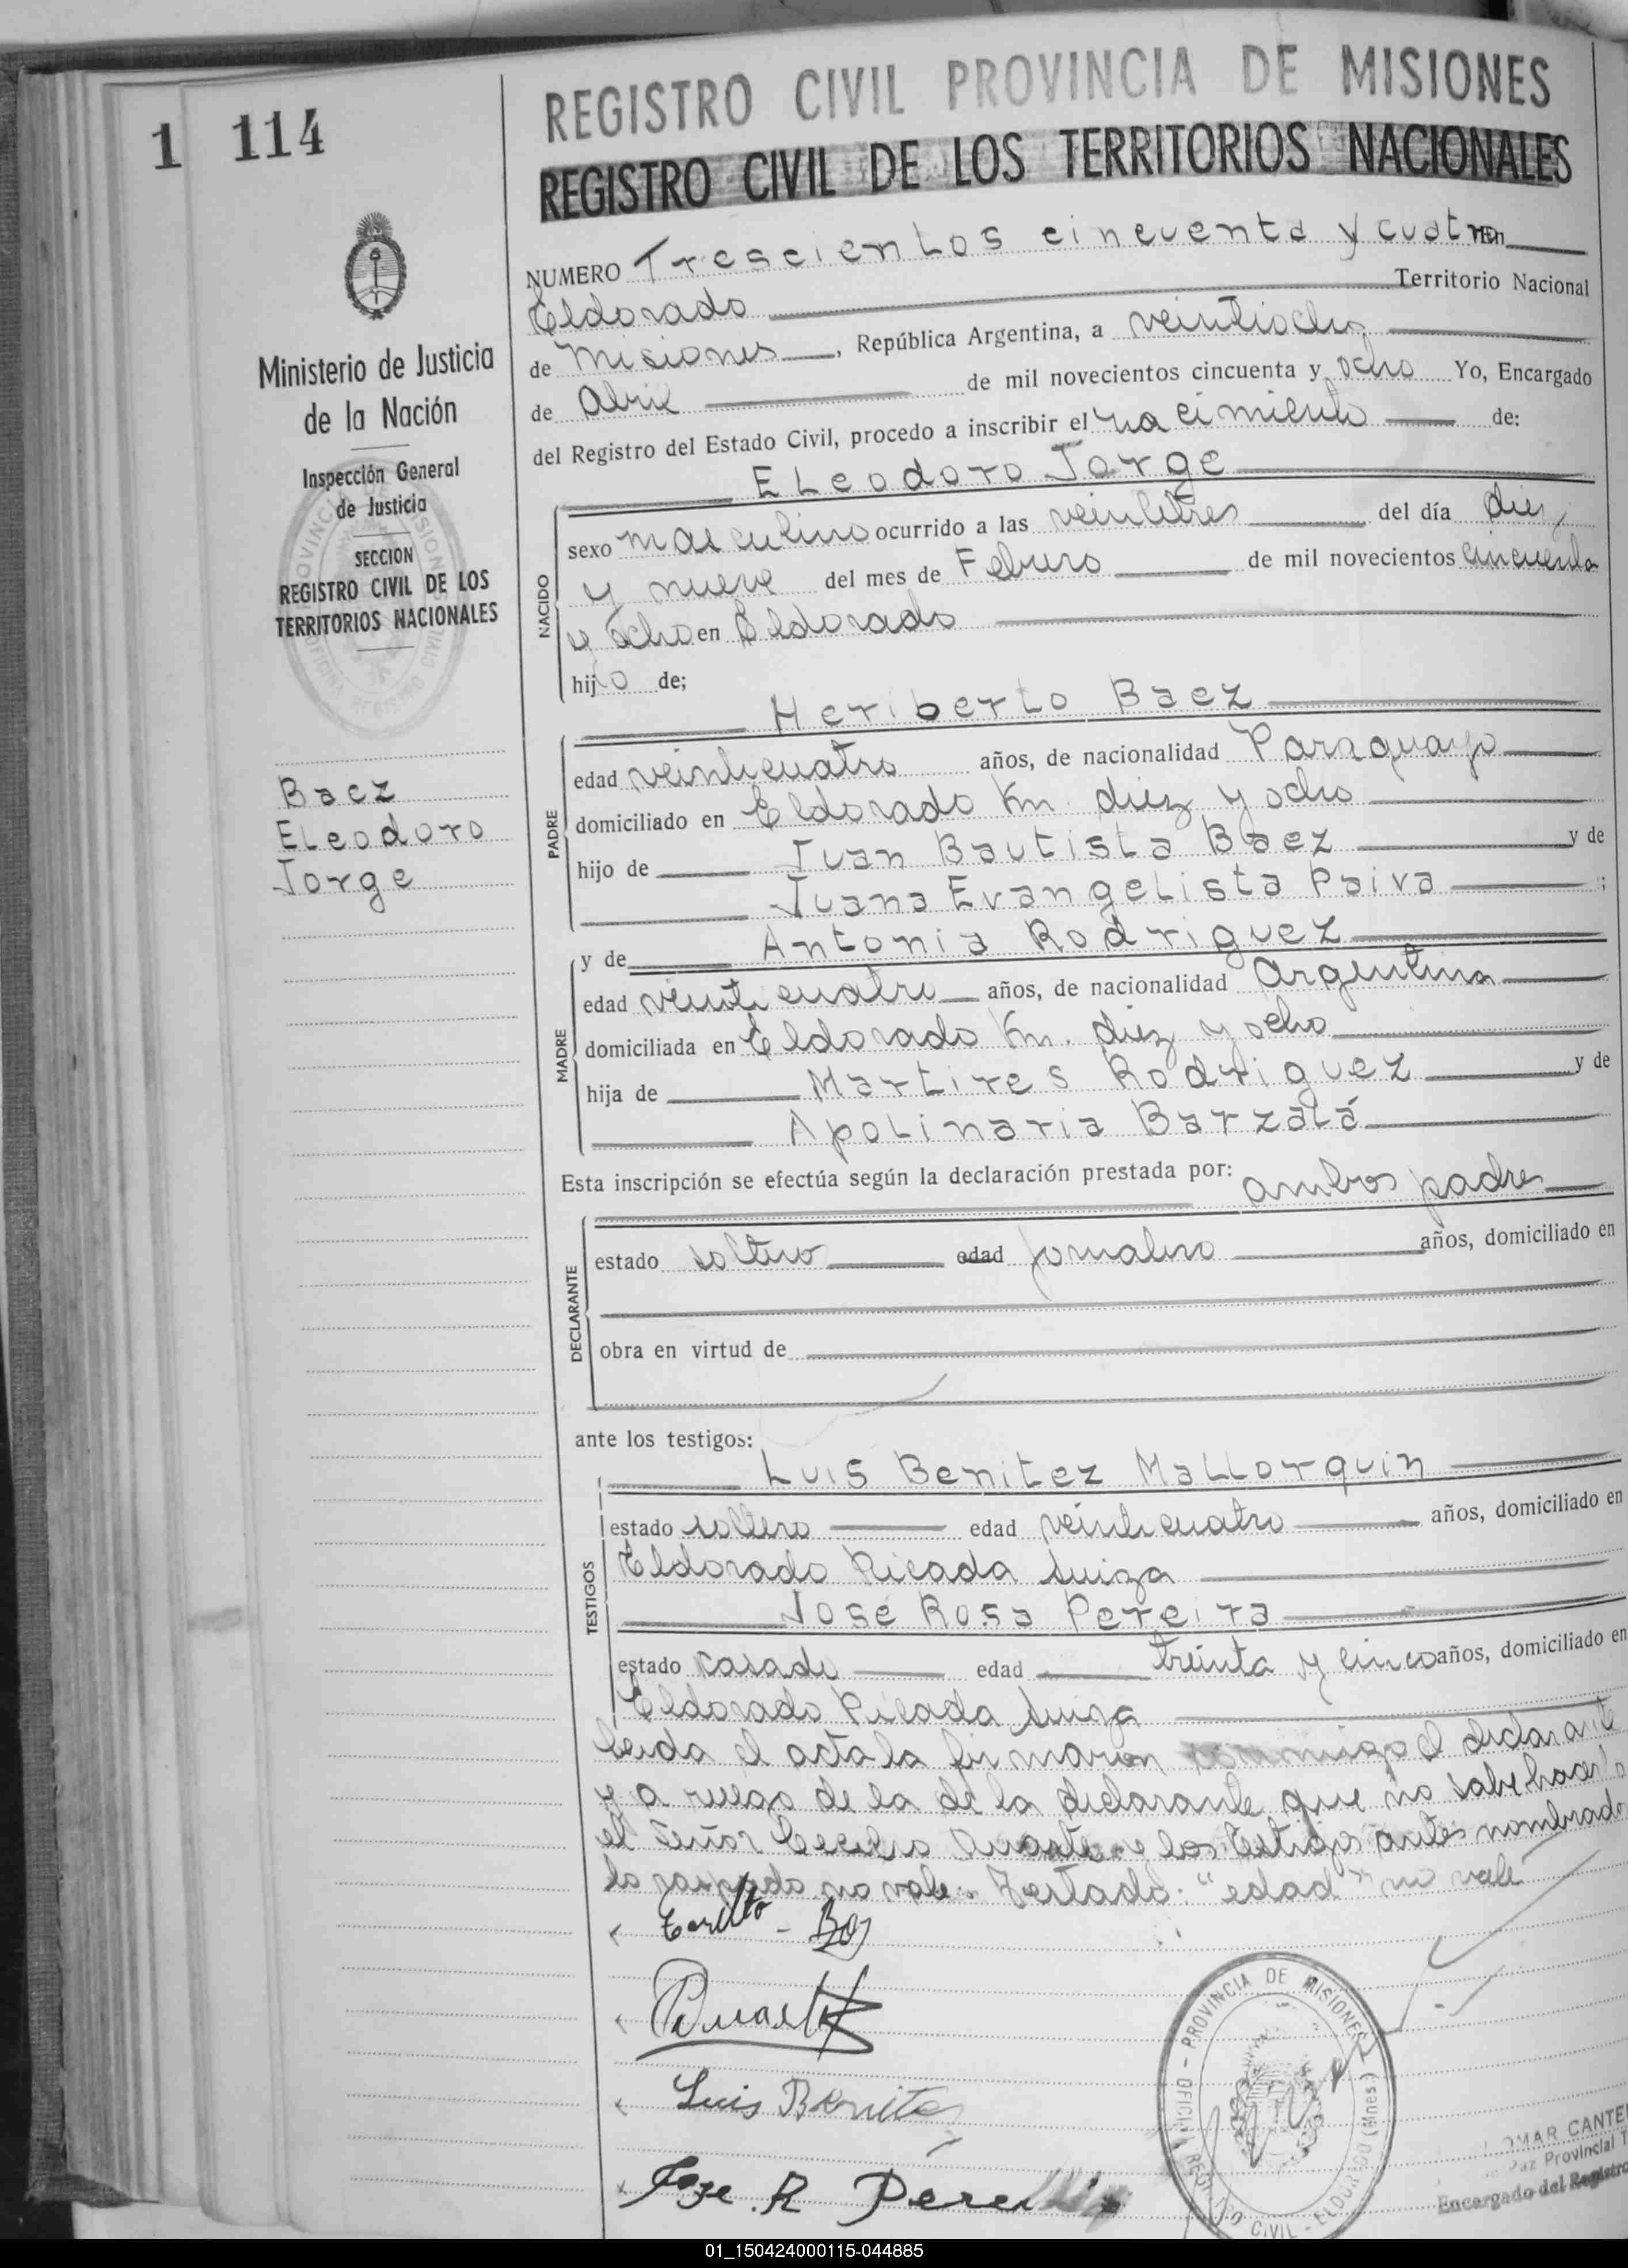 REGISTRO CIVIL PROVINCIA DE MISIONES
REGISTRO CIVIL DE LOS TERRITORIOS NACIONALES
1 114
Ministerio de Justicia
de la Nación
Inspección General
de Justicia
SECCION
REGISTRO CIVIL DE LOS
TERRITORIOS NACIONALES
Baez
Eleodoro
Jorge
NUMERO Trescientos cincuenta y cuatro En
Eldorado Territorio Nacional
de Misiones, República Argentina, a veintiocho
de Abril de mil novecientos cincuenta y ocho Yo, Encargado
del Registro del Estado Civil, procedo a inscribir el nacimiento de:
Eleodoro Jorge
NACIDO
sexo masculino ocurrido a las veintitres del día diez
y nueve del mes de Febrero de mil novecientos cincuenta
y ocho en Eldorado
hijo de;
Heriberto Baez
PADRE
edad veinticuatro años, de nacionalidad Paraguayo
domiciliado en Eldorado Km. diez y ocho
hijo de Juan Bautista Baez y de
Juana Evangelista Paiva ;
y de Antonia Rodriguez
MADRE
edad veinticuatro años, de nacionalidad Argentina
domiciliada en Eldorado Km. diez y ocho
hija de Martires Rodriguez y de
Apolinaria Barzalá
Esta inscripción se efectúa según la declaración prestada por: ambos padres
DECLARANTE
estado soltero edad jornalero años, domiciliado en
obra en virtud de
ante los testigos:
Luis Benitez Mallorquin
TESTIGOS
estado soltero edad veinticuatro años, domiciliado en
Eldorado Picada Suiza
Jose Rosa Pereira
estado casado edad treinta y cinco años, domiciliado en
Eldorado Picada Suiza
Leida el acta la firmaron conmigo el declarante
y a ruego de la de la declarante que no sabe hacerlo
el señor Cecilio Duarte y los testigos antes nombrados
lo raspado no vale. Testado: "edad" no vale
Duarte
Luis Benitez
Jose R Perei
OFICINA REGISTRO CIVIL - ELDORADO (Mnes.) - PROVINCIA DE MISIONES
OMAR CANTE
Paz Provincial
Encargado del Registro
01_150424000115-044885